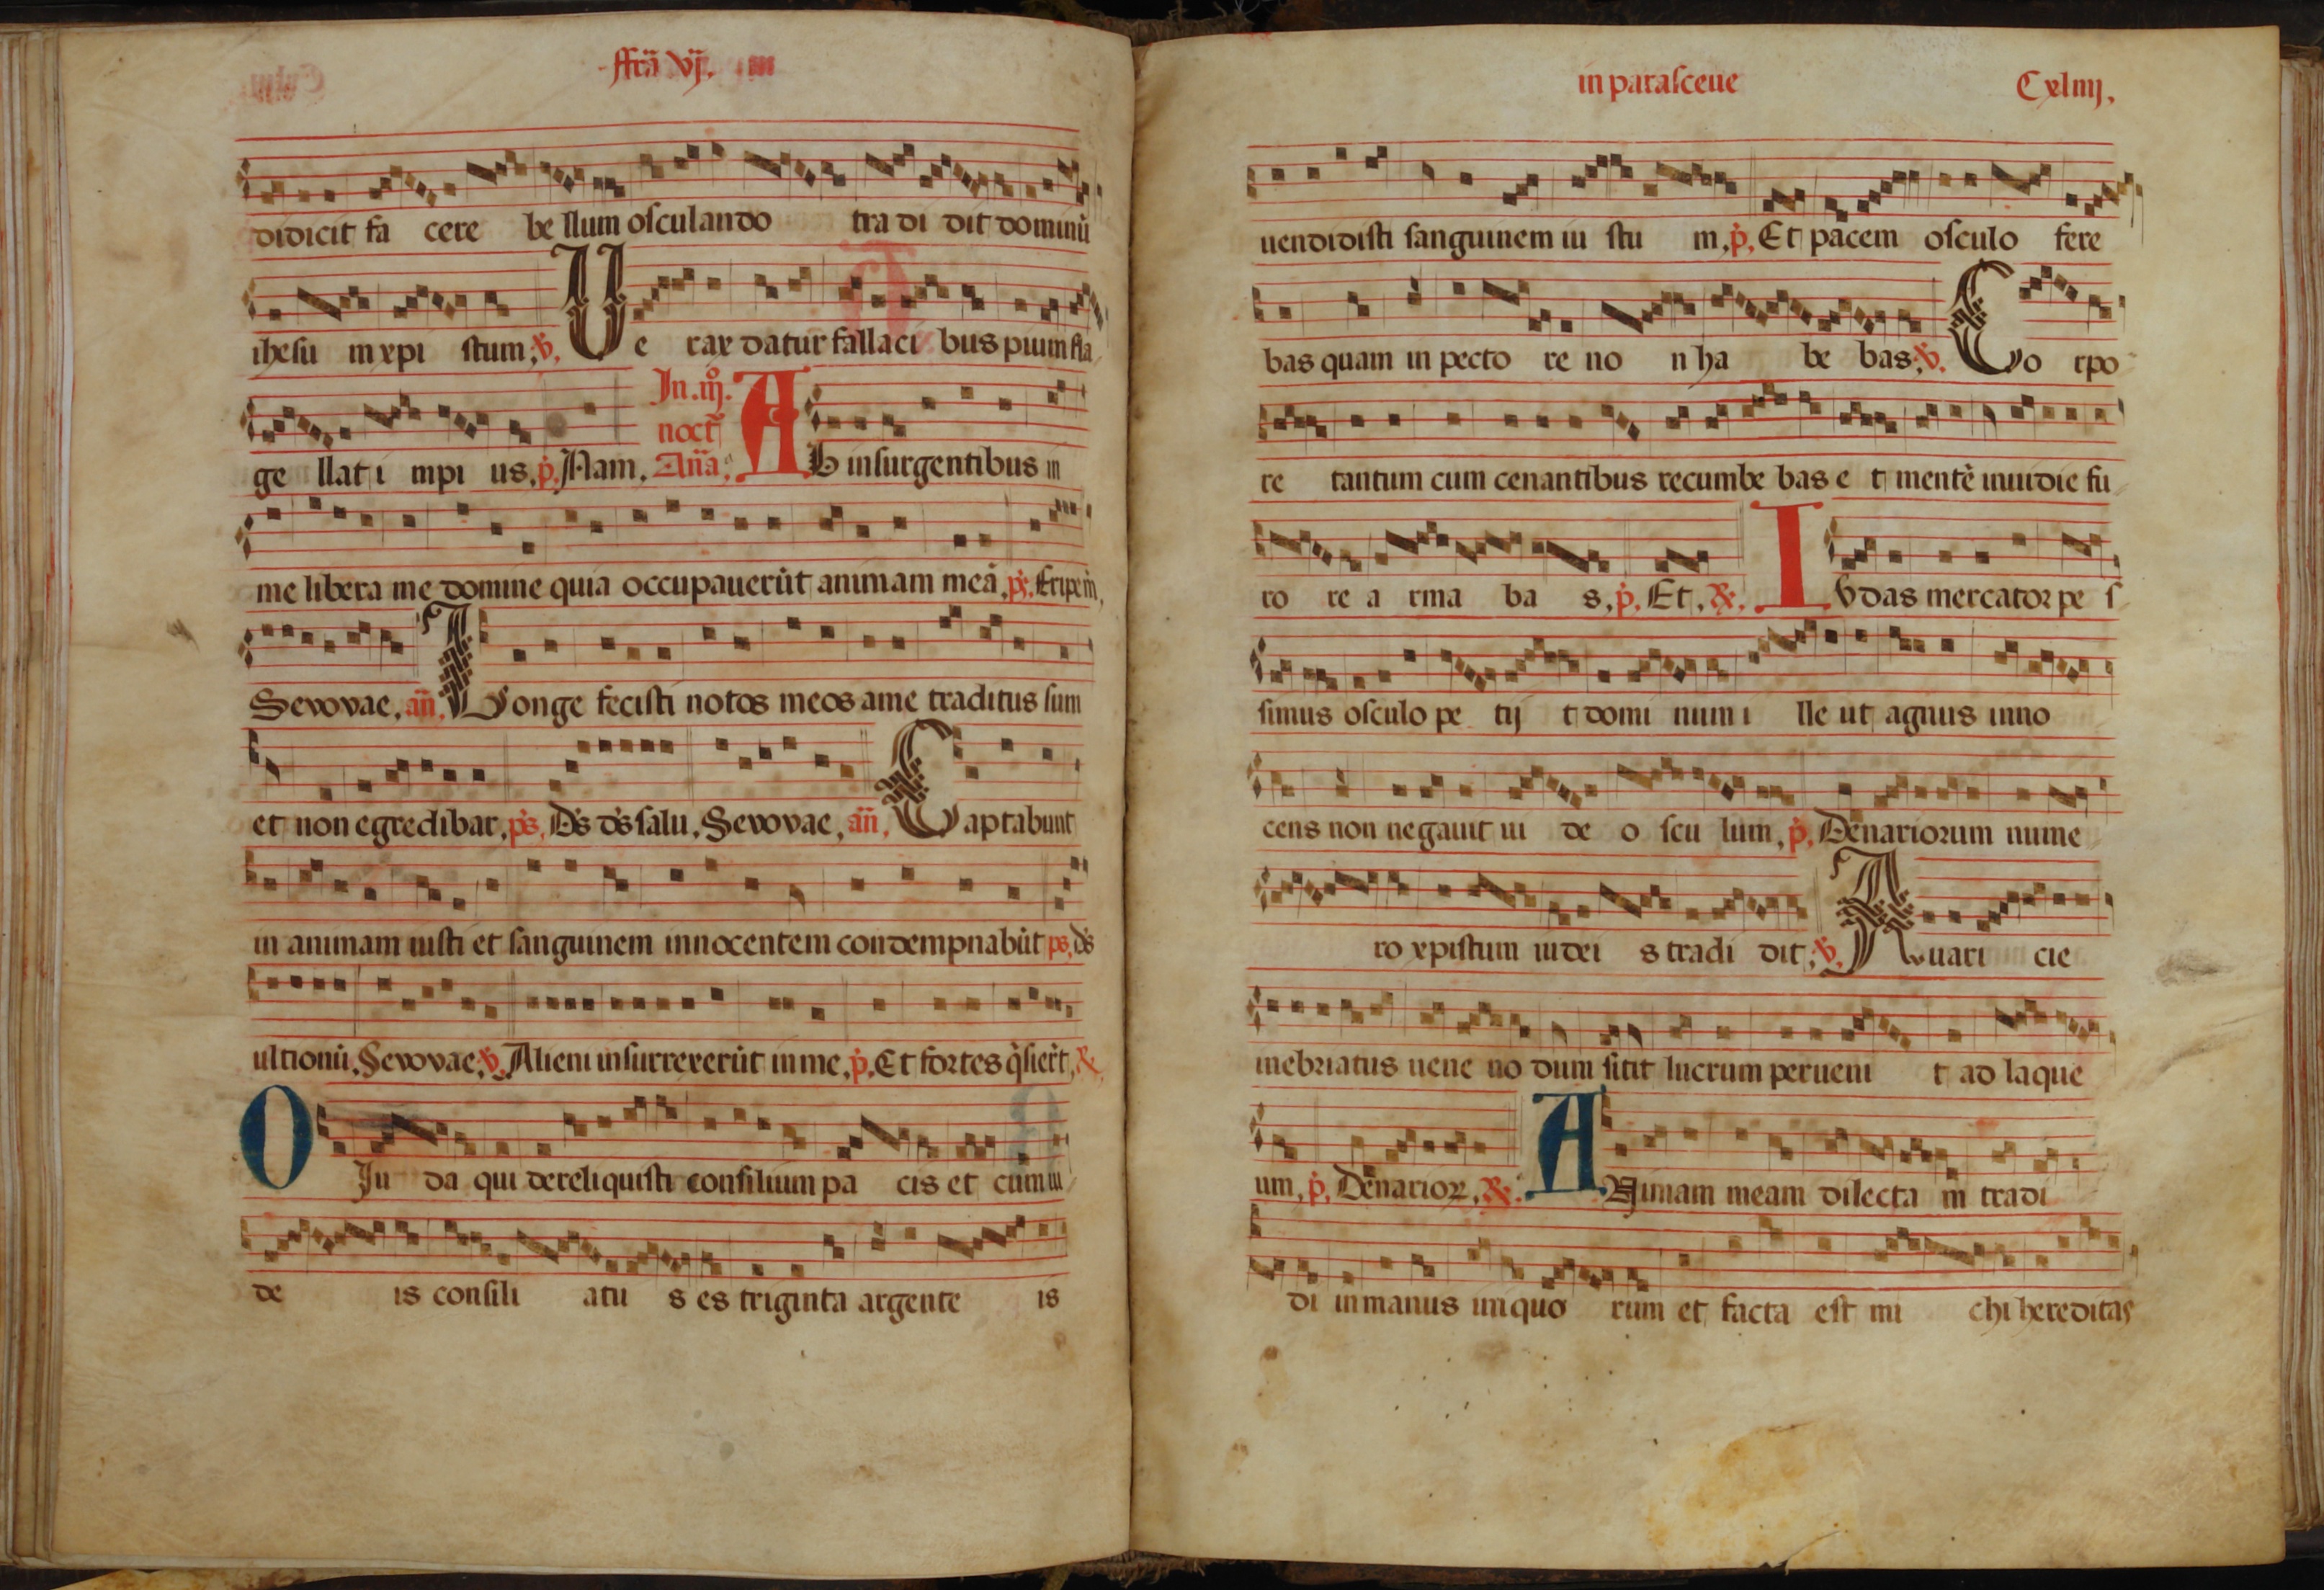 ffrã vj.
didicit fa cere be llum osculando tra di dit dominũ
ihesu m xpi stum, v̾. Ue rax datur fallaci bus pium fla
ge llat i mpi us, p̾. Nam. In .iij. noct̃ Añã. Ab insurgentibus in
me libera me domine quia occupauerũt animam meã, ps̾. Eripe m̃,
Sevovae, añ. Longe fecisti notos meos a me traditus sum
et non egredibar, ps̾. Ds̾ ds̾ salu, Sevovae, añ. Captabunt
in animam iusti et sanguinem innocentem condempnabũt ps, ds̾
ultionũ, Sevovae, v̾. Alieni insurrexerũt in me, p̾. Et fortes q̾siẽrt, R̾.
O Iu da qui dereliquisti consilium pa cis et cum iu
de is consili atu s es triginta argente is
in parasceue
Cxliiij.
uendidisti sanguinem iu stu m, p̾. Et pacem osculo fere
bas quam in pecto re no n ha be bas, v̾. Co rpo
re tantum cum cenantibus recumbe bas e t mentẽ inuidie fu
ro re a rma ba s, p̾. Et, R̾. Iudas mercator pe s
simus osculo pe tij t domi num i lle ut agnus inno
cens non negauit iu de o scu lum, p̾. Denariorum nume
ro xpistum iudei s tradi dit, v̾. Auari cie
inebriatus uene no dum sitit lucrum perueni t ad laque
um, p̾. Denarioꝝ, R̾. Animam meam dilecta m tradi
di in manus iniquo rum et facta est mi chi hereditas